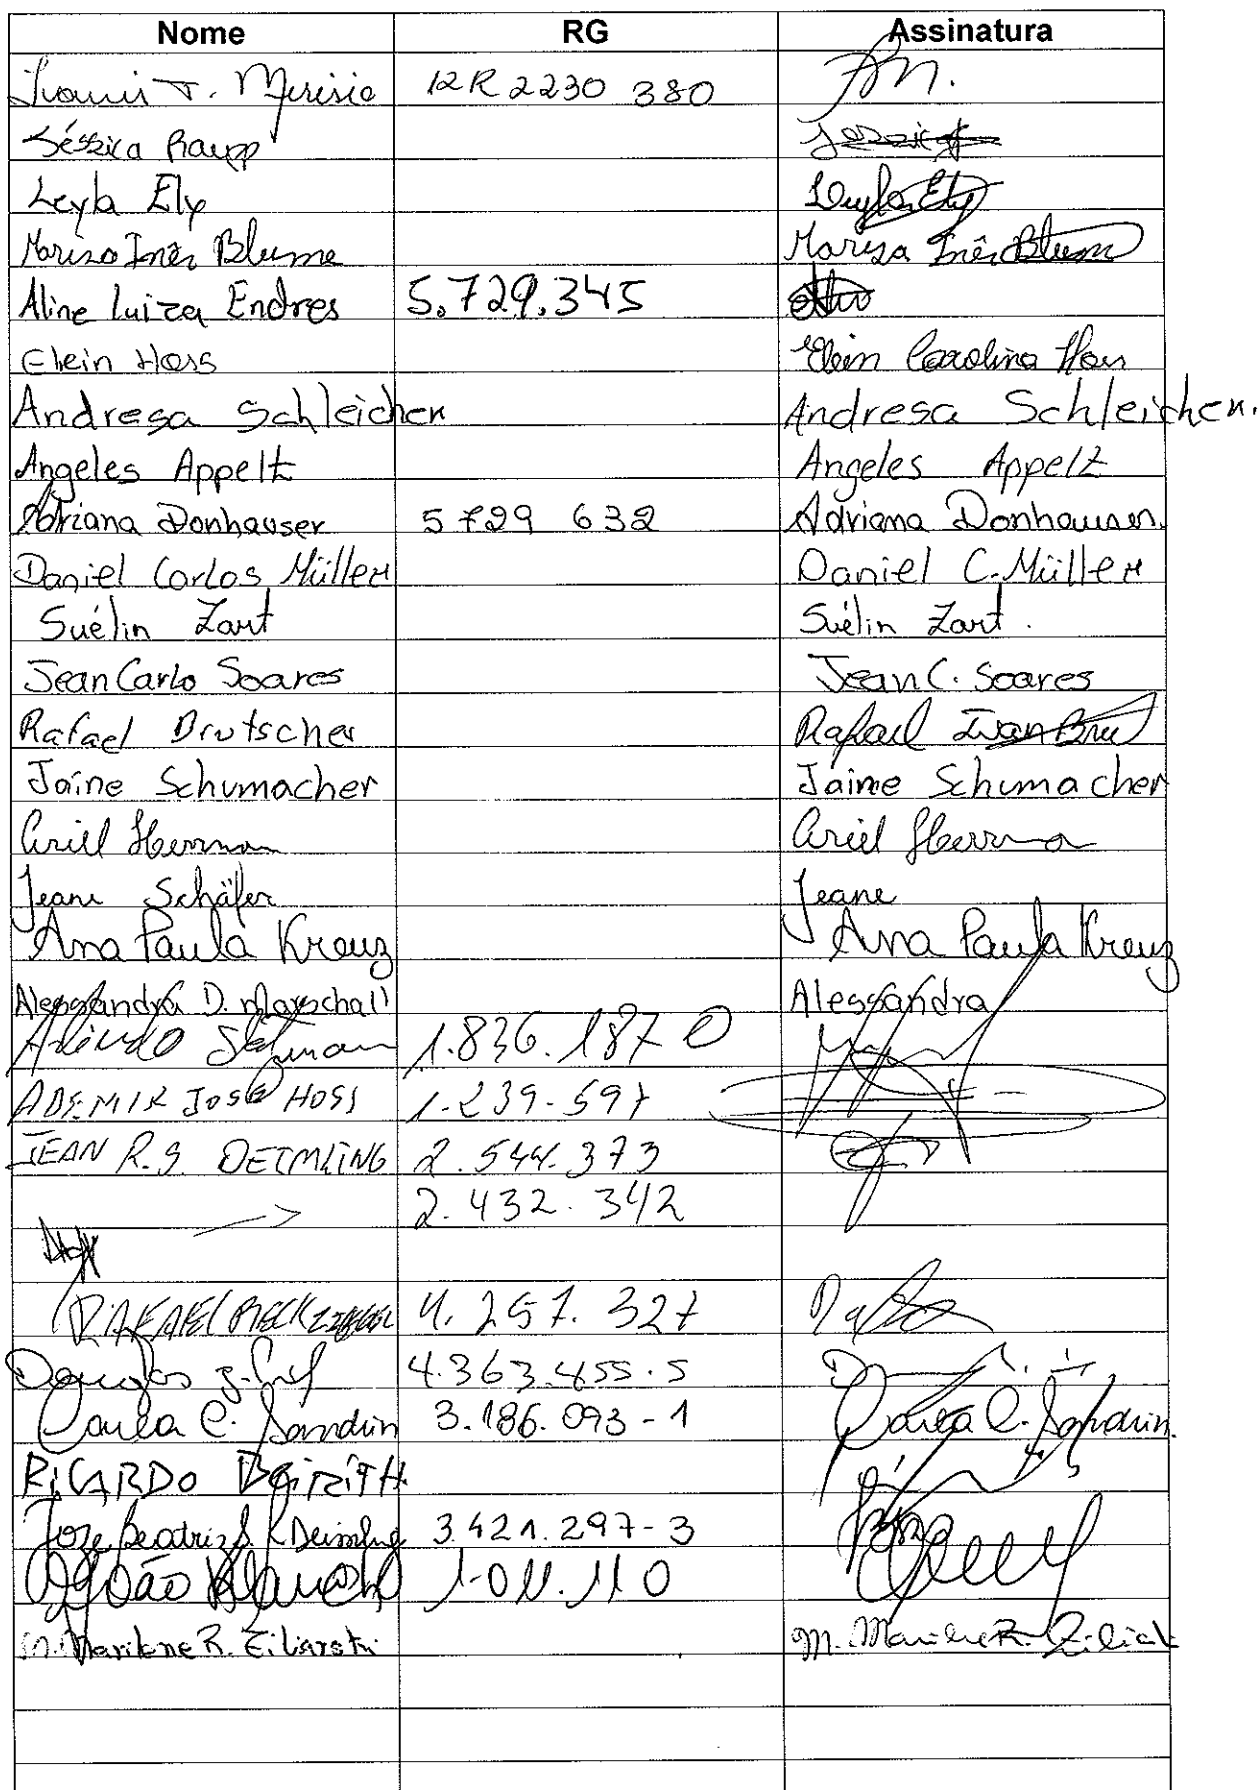 Nome RG Assinatura
T. 12R 2230 380
Raupp
Leyla Ely Leyla Ely
Inês Blume Marisa Inês Blum
Aline Luiza Endres 5.729.345
Elein Hoss Elein Carolina Hoss
Andresa Schleicher Andresa Schleicher.
Angeles Appelt Angeles Appelt
Adriana Donhauser 5 729 632 Adriana Donhauser.
Daniel Carlos Müller Daniel C. Müller
Suélin Zart Suélin Zart.
Jean Carlo Soares Jean C. Soares
Rafael Rafael Ivan
Jaíne Schumacher Jaine Schumacher
Ariel Ariel
Jeane Schäfer Jeane
Ana Paula Kreuz Ana Paula Kreuz
Alessandra D. Marschall Alessandra
1.836.187 0
ADEMIR JOSÉ HOSS 1.239.597
JEAN R.S. 2.544.373
2.432.342
RAFAEL 4.257.327
Douglas 4.363.455-5
Carla C. Sandrin 3.186.093-1 Carla C. Sandrin.
RICARDO
Beatriz 3.421.297-3
João 1.011.110
M. Marilene R. M.